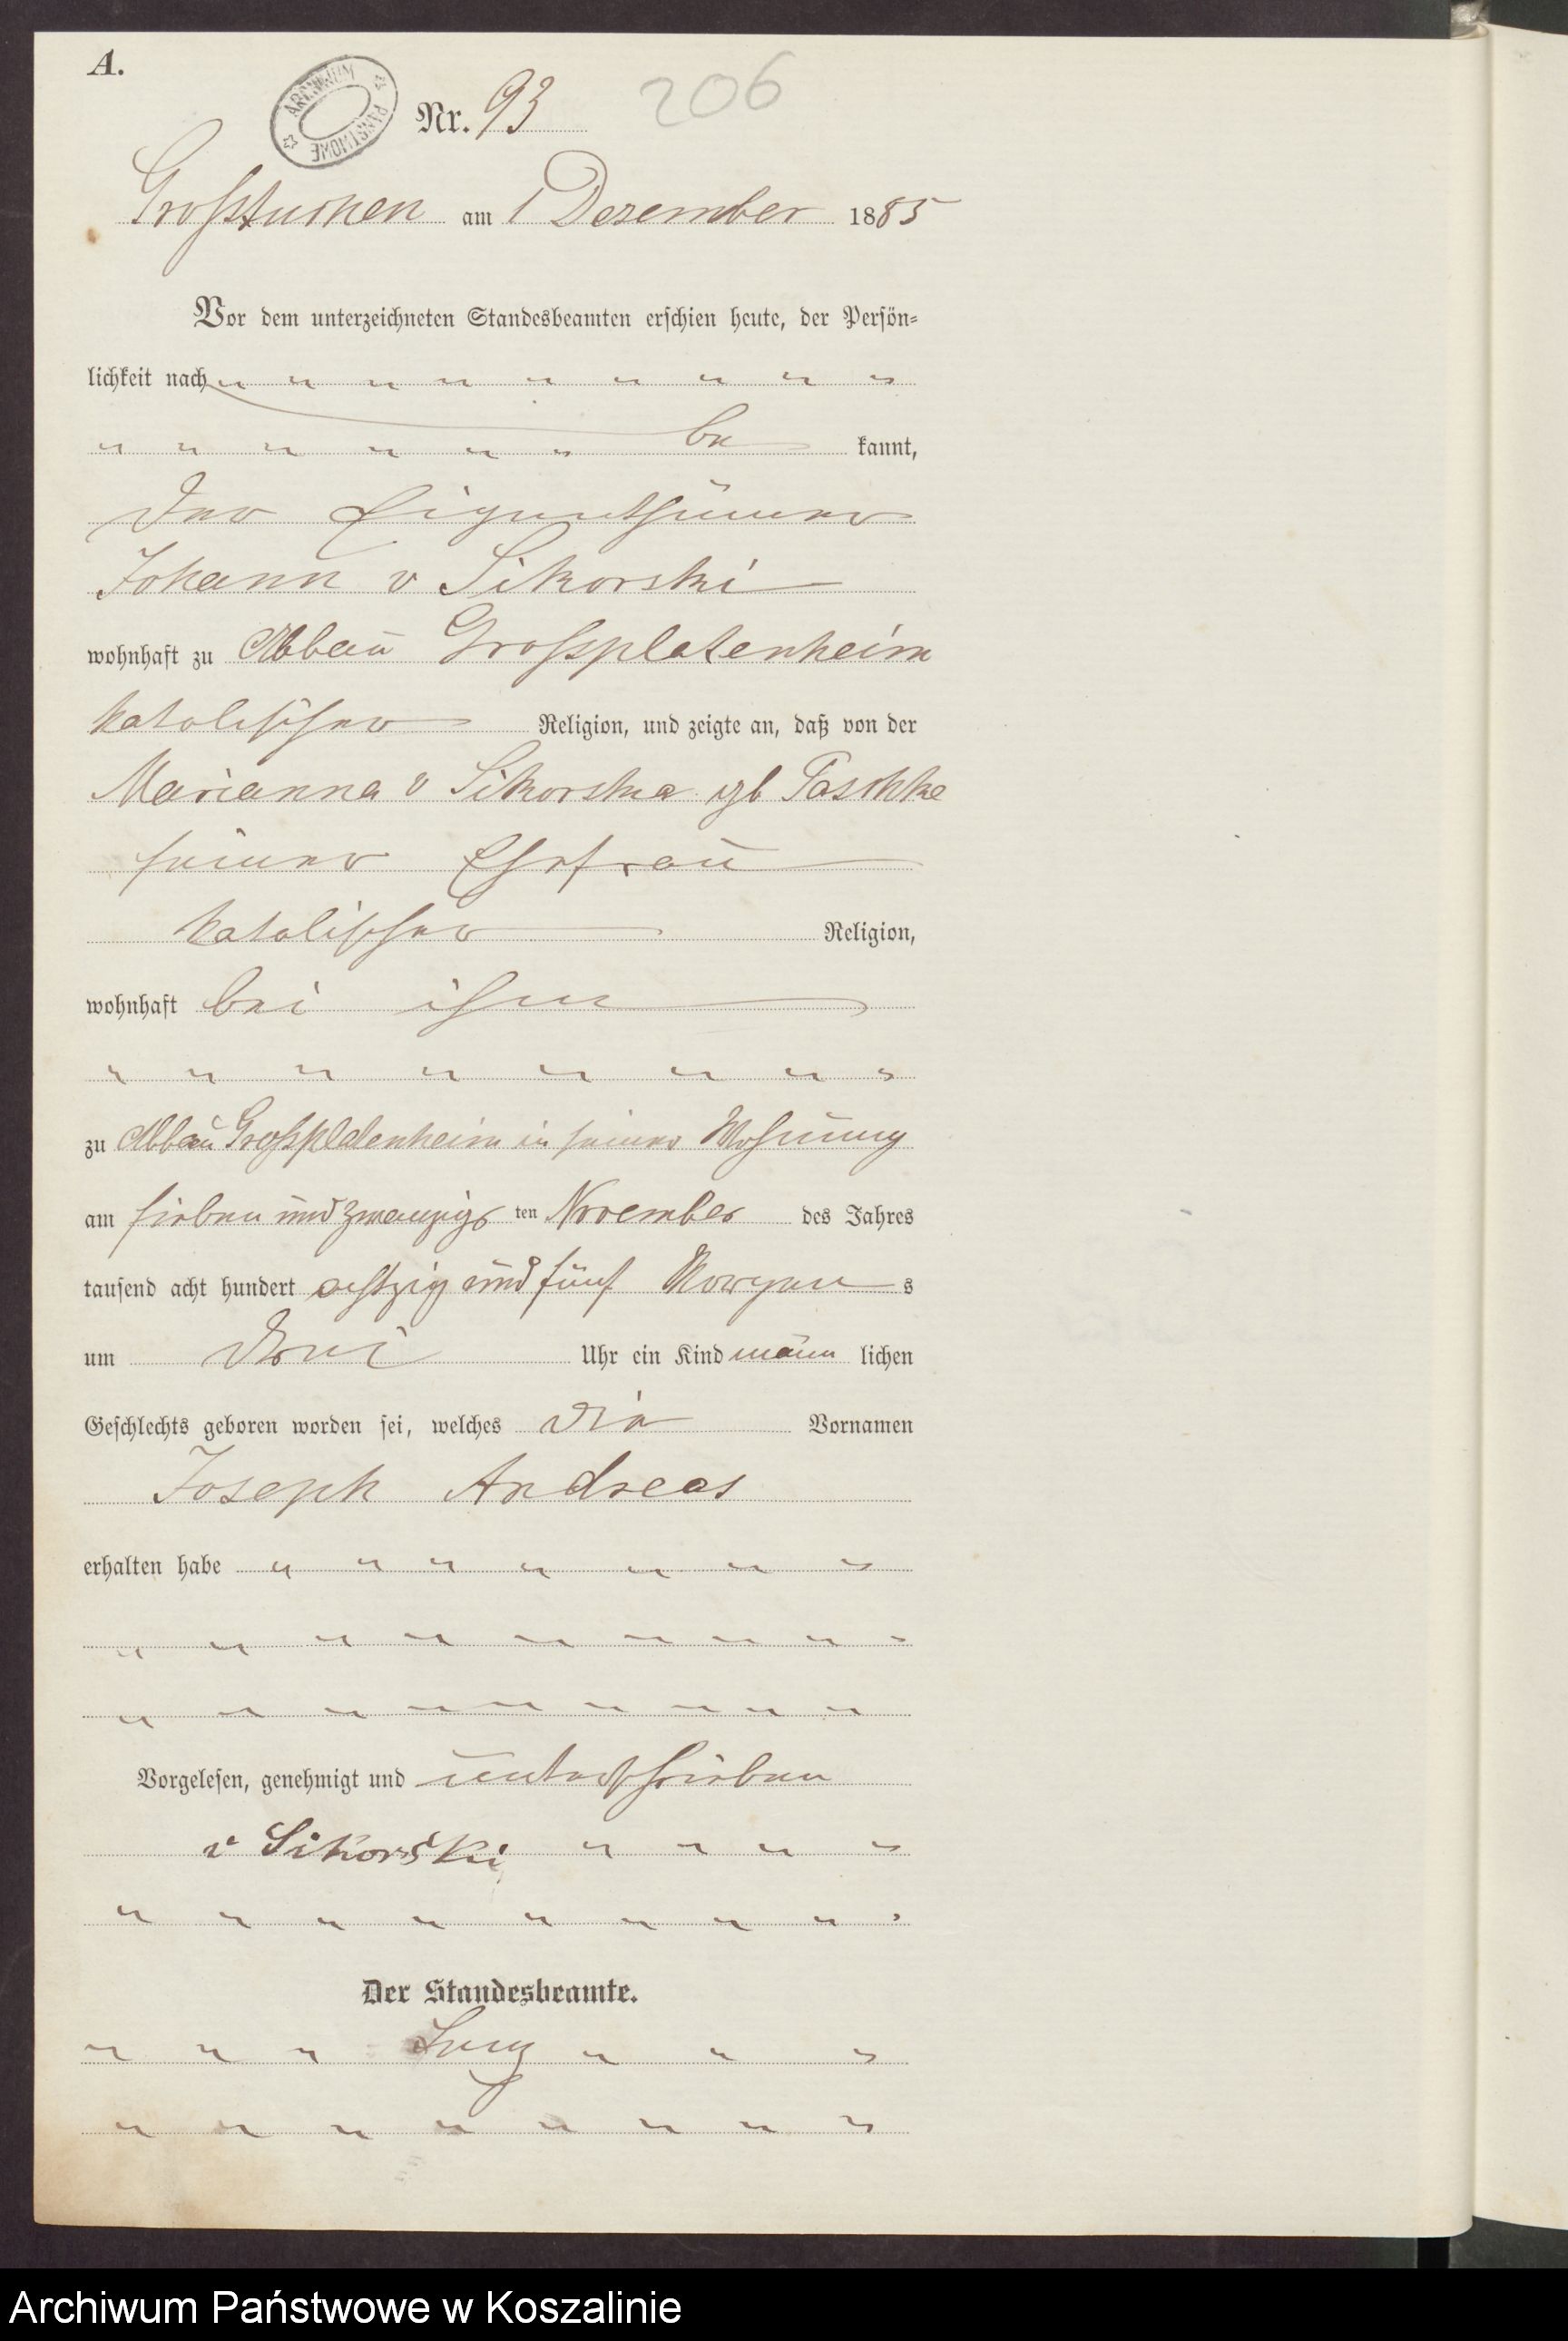 A.
ARCHIWUM PAŃSTWOWE
Nr. 93
206
Großtuchen am 1 Dezember 1885
Vor dem unterzeichneten Standesbeamten erschien heute, der Persön-
lichkeit nach
be kannt,
der Eigenthümer
Johann v Sikorski
wohnhaft zu Abbau Großplatenheim
katolischer Religion, und zeigte an, daß von der
Marianna v Sikorska gb
seiner Ehefrau
katolischer Religion,
wohnhaft bei ihm
zu Abbau Großplatenheim in seiner Wohnung
am sieben und zwanzigs ten November des Jahres
tausend acht hundert achtzig und fünf Morgen s
um drei Uhr ein Kind männ lichen
Geschlechts geboren worden sei, welches die Vornamen
Joseph Andreas
erhalten habe
Vorgelesen, genehmigt und unterschrieben
v Sikorski
Der Standesbeamte.
Archiwum Państwowe w Koszalinie